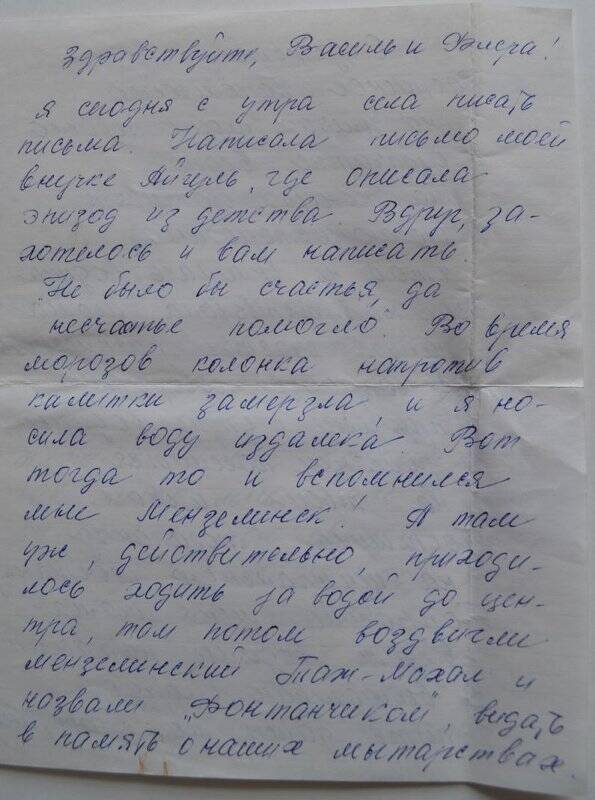 Здравствуйте, Василь и Флера!
Я сегодня с утра села писать
письма. Написала письмо моей
внучке Айгуль, где описала
эпизод из детства. Вдруг, за-
хотелось и вам написать.
"Не было бы счастья, да
несчастье помогло". Во время
морозов колонка напротив
калитки замерзла, и я но-
сила воду издалека. Вот
тогда то и вспомнился
мне Мензелинск! А там
уж, действительно, приходи-
лось ходить за водой до цен-
тра, там потом воздвигли
мензелинский Таж-Махал и
назвали "Фонтанчиком", видать
в память о наших мытарствах.